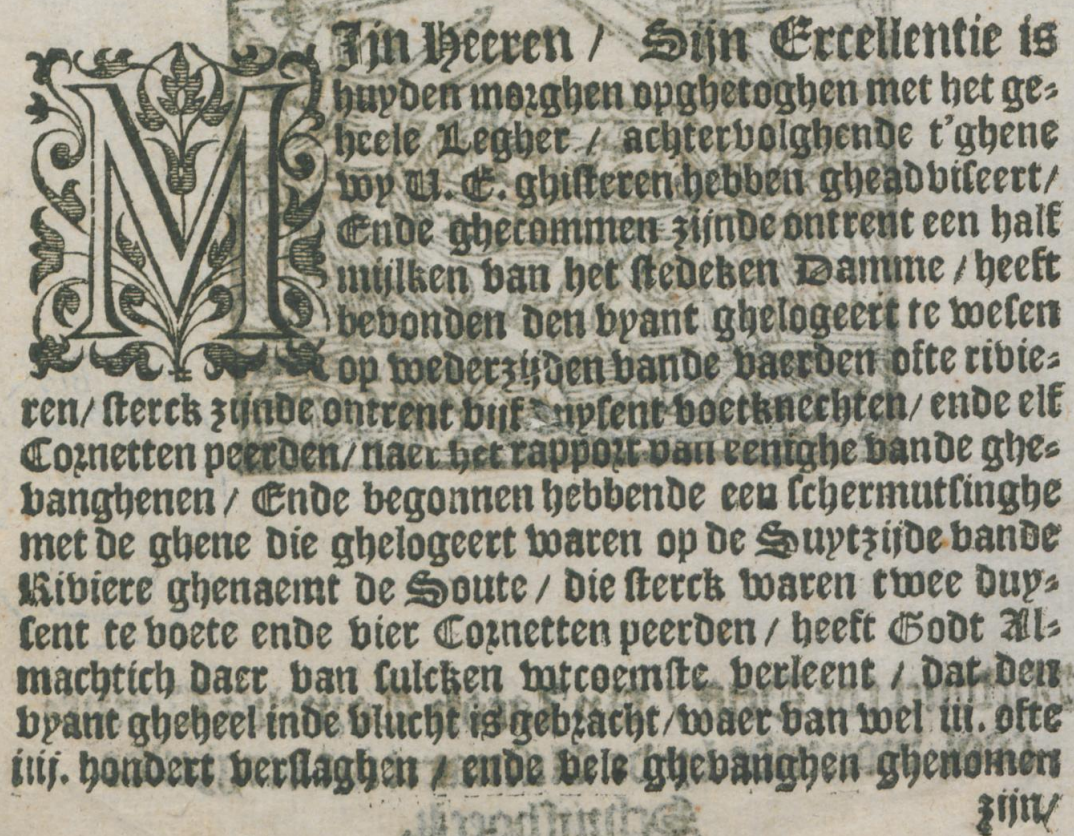 MIjn Heeren / Sijn Excellentie is
huyden morghen opghetoghen met het ge-
heele Legher / achtervolghende t'ghene
wy U. E. ghisteren hebben gheadviseert/
Ende ghecommen zijnde ontrent een half
mijlken van het stedeken Damme / heeft
bevonden den vyant ghelogeert te wesen
op wederzijden vande vaerden ofte rivie-
ren/ sterck zijnde ontrent vijf duysent voetknechten/ ende elf
Cornetten peerden/ naer het rapport van eenighe vande ghe-
vanghenen / Ende begonnen hebbende een schermutsinghe
met de ghene die ghelogeert waren op de Suytzijde vande
Riviere ghenaemt de Soute / die sterck waren twee duy-
sent te voete ende vier Cornetten peerden / heeft Godt Al-
machtich daer van sulcken wtcoemste verleent / dat den
vyant gheheel inde vlucht is gebracht/ waer van wel iii. ofte
iiij. hondert verslaghen / ende vele ghevanghen ghenomen
zijn/